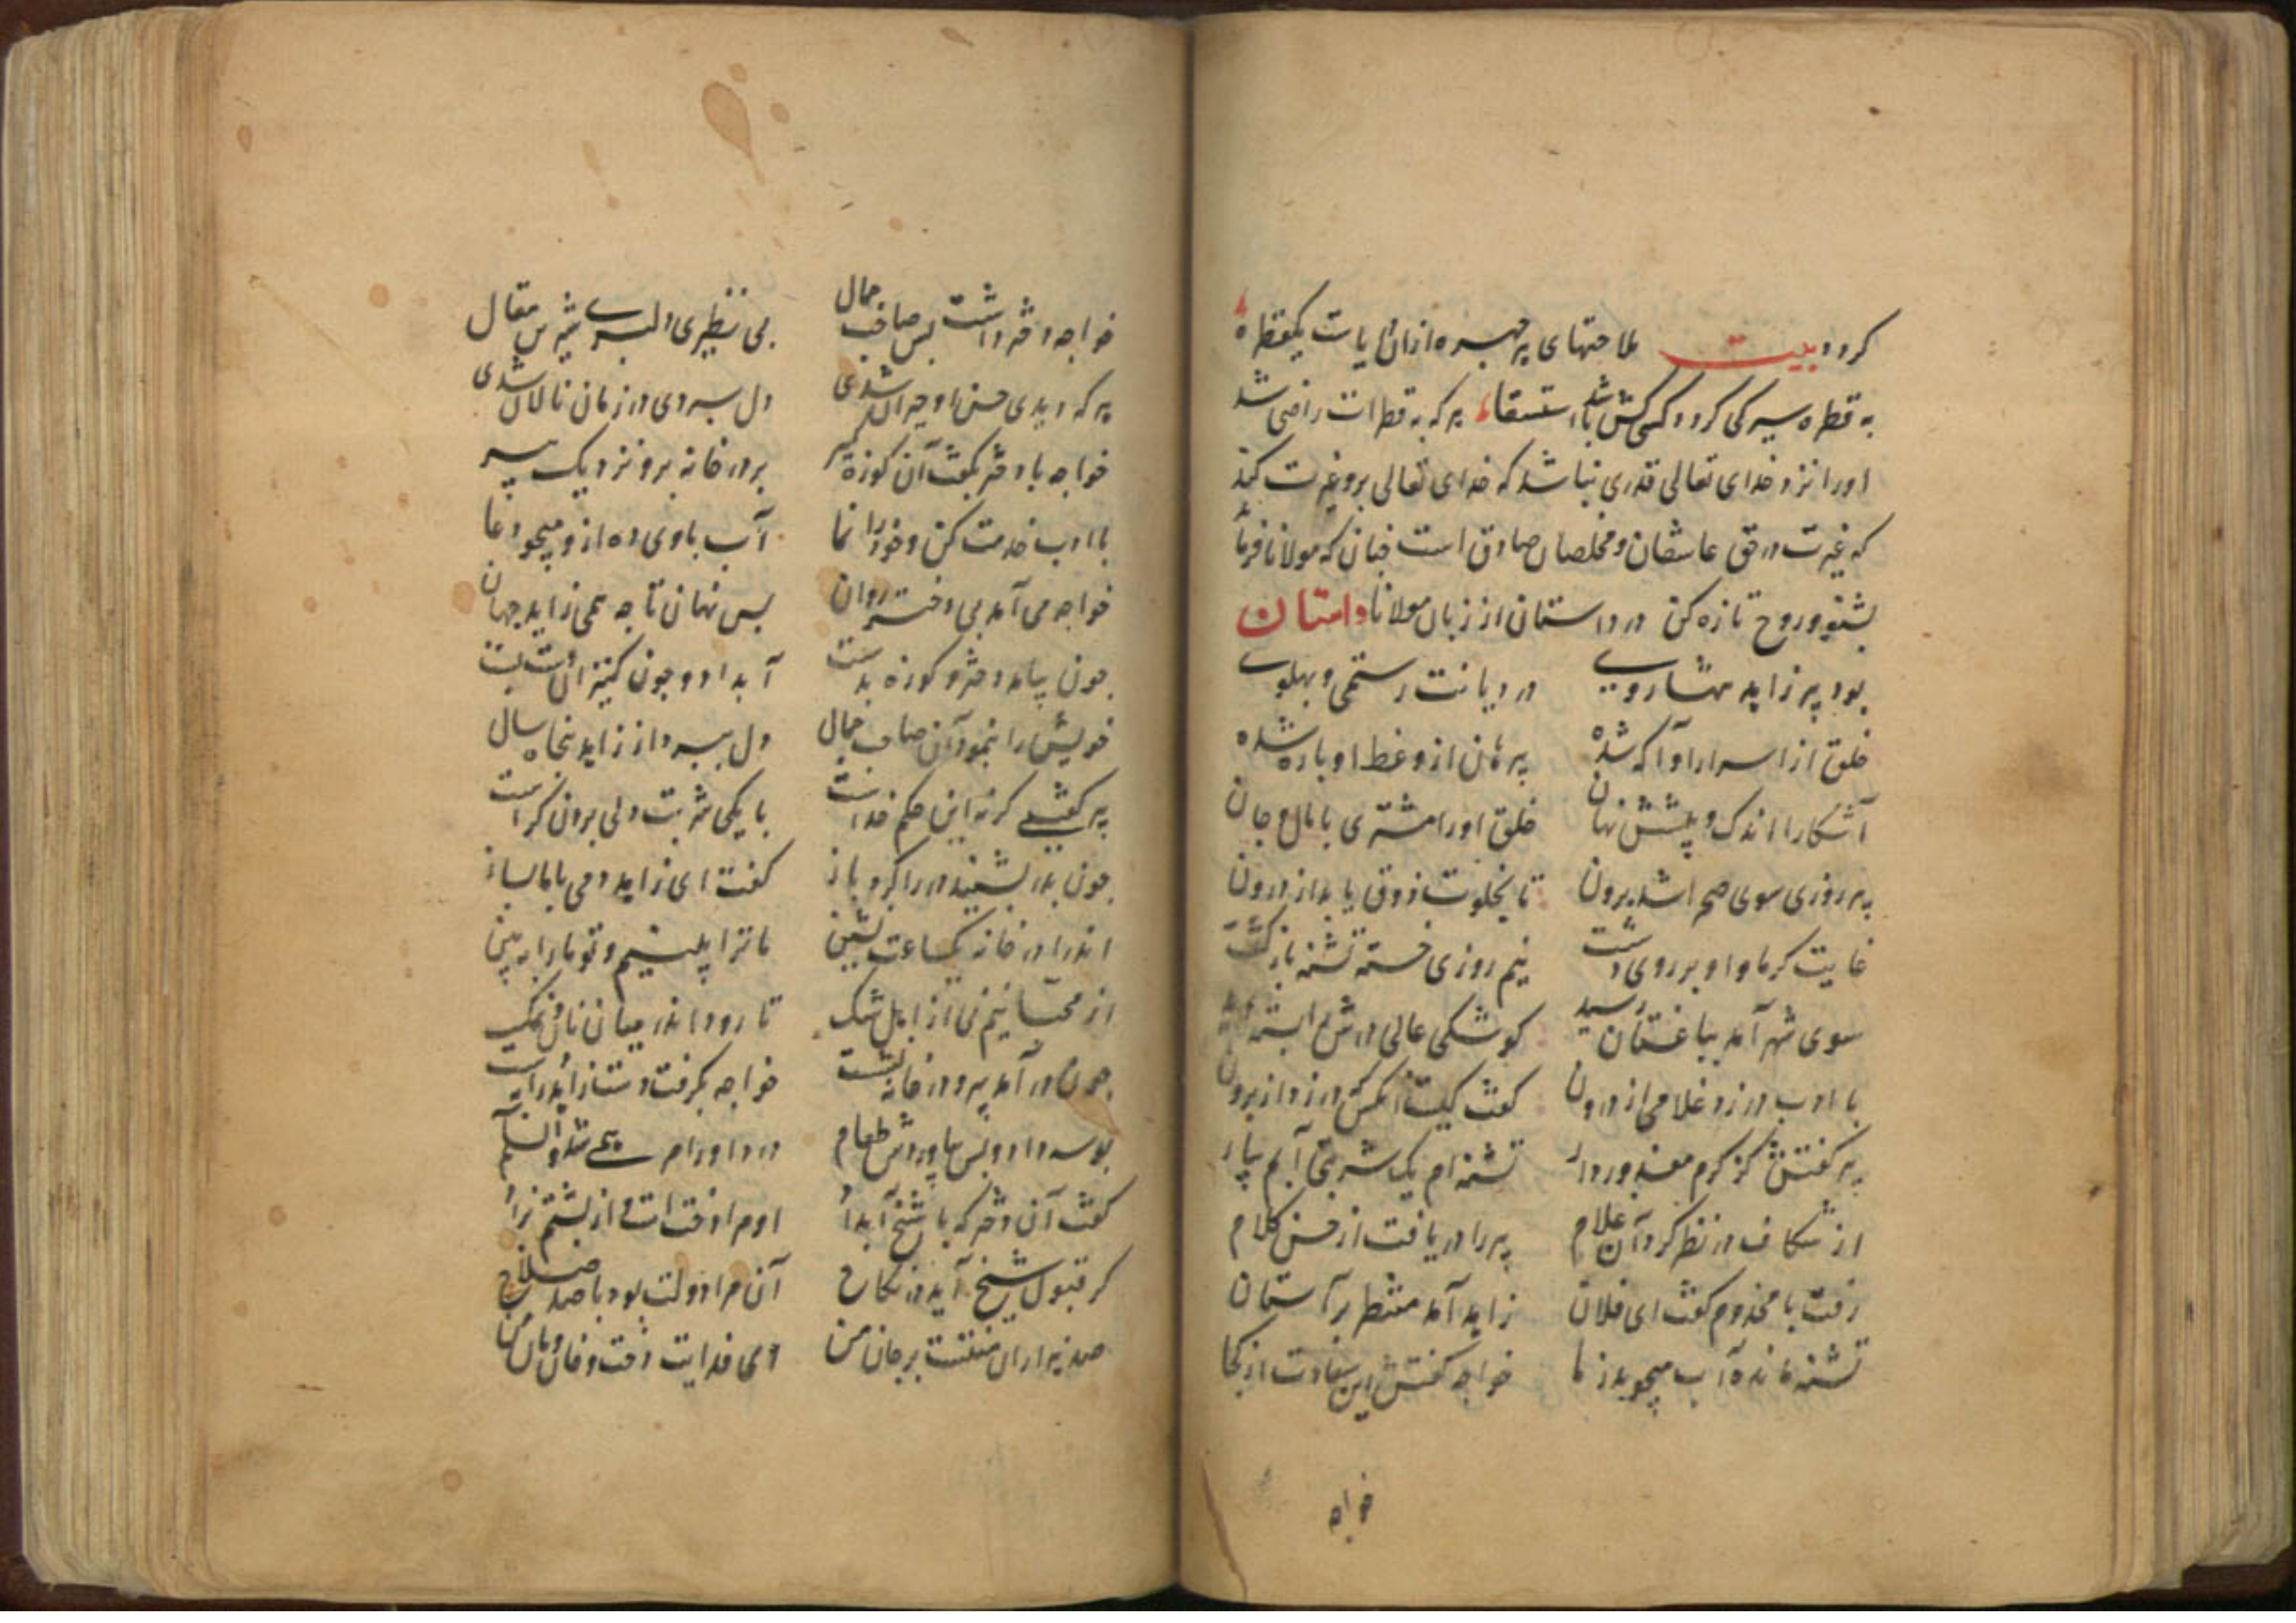 کردد بیت ملاحتهای هر چهره ازان دریاست یکقطره
به قطره سیر کی کردد کسی کش باشد استسقا هر که به قطرات راضی شد
او را نزد خدای تعالی قدری نباشد که خدای تعالی برو غیرت کند
که غیرت در حق عاشقان و مخلصان صادق است چنان که مولانا فرماید
بشنو و روح تازه کن در داستان از زبان مولانا داستان
بود پیر زاهد مه‌ارویی در دیانت رستمی و پهلوی
خلق از اسرار او آکه شده پیر هان از وعظ او باره شده
آشکارا اندک و پیشش نهان خلق او را مشتری با مال و جان
پیر روزی سوی صحرا شد برون تا بخلوت ذوق یابد از درون
غایت کرما و او بر روی دشت نیم روزی خسته تشنه باز گشت
سوی شهر آمد بباغستان رسید کوشکی عالی درش بسته
با ادب در زد غلامی از درون کفت کیست آنکس که در زد از برون
پیر کفتش کز کرم معذور دار تشنه‌ام یک شربتی آبم بیار
از شکاف در نظر کرد آن غلام پیر را دریافت از حسن کلام
رفت با مخدوم کفت ای فلان زاهد آمد منتظر بر آستان
تشنه مانده آب میجوید ز ما خواجه کفتش این سعادت از کجا
خواجه
خواجه دختر داشت بس صاحب جمال بی نظیری دلبری شیرین مقال
هر که دیدی حسن او حیران شدی دل سپردی در زمان نالان شدی
خواجه با دختر بکفت آن کوزه کیر بر در خانه برو نزدیک پیر
با ادب خدمت کن و خود را نما آب باوی ده ازو میجو دعا
خواجه می آمد پی دختر روان پس نهان تا چه همی زاید جهان
چون بیامد دختر و کوزه بدست آب داد و چون کنیزان نشست
خویش را بنمود آن صاحب جمال دل ببرد از زاهد پنجاه سال
پیر کفتی کرنه این حکم خداست با یکی شربت دلی بردن کراست
چون پدر بشنید در را کرد باز کفت ای زاهد دمی با ما بساز
اندرا در خانه یکساعت نشین ما ترا بینیم و تو ما را ببین
از محبانیم نی از اهل شک تا رود اندر میان نان و نمک
چون در آمد پیر و در خانه نشست خواجه بکرفت دست زاهد راست
بوسه داد و پس بیاوردش طعام
کفت آن دختر که با شیخ آب داد
کر قبول شیخ آید در نکاح آن مرا دولت بود با صد صلاح
صد هزاران منتست بر جان من ای فدایت دخت و خان و مان من